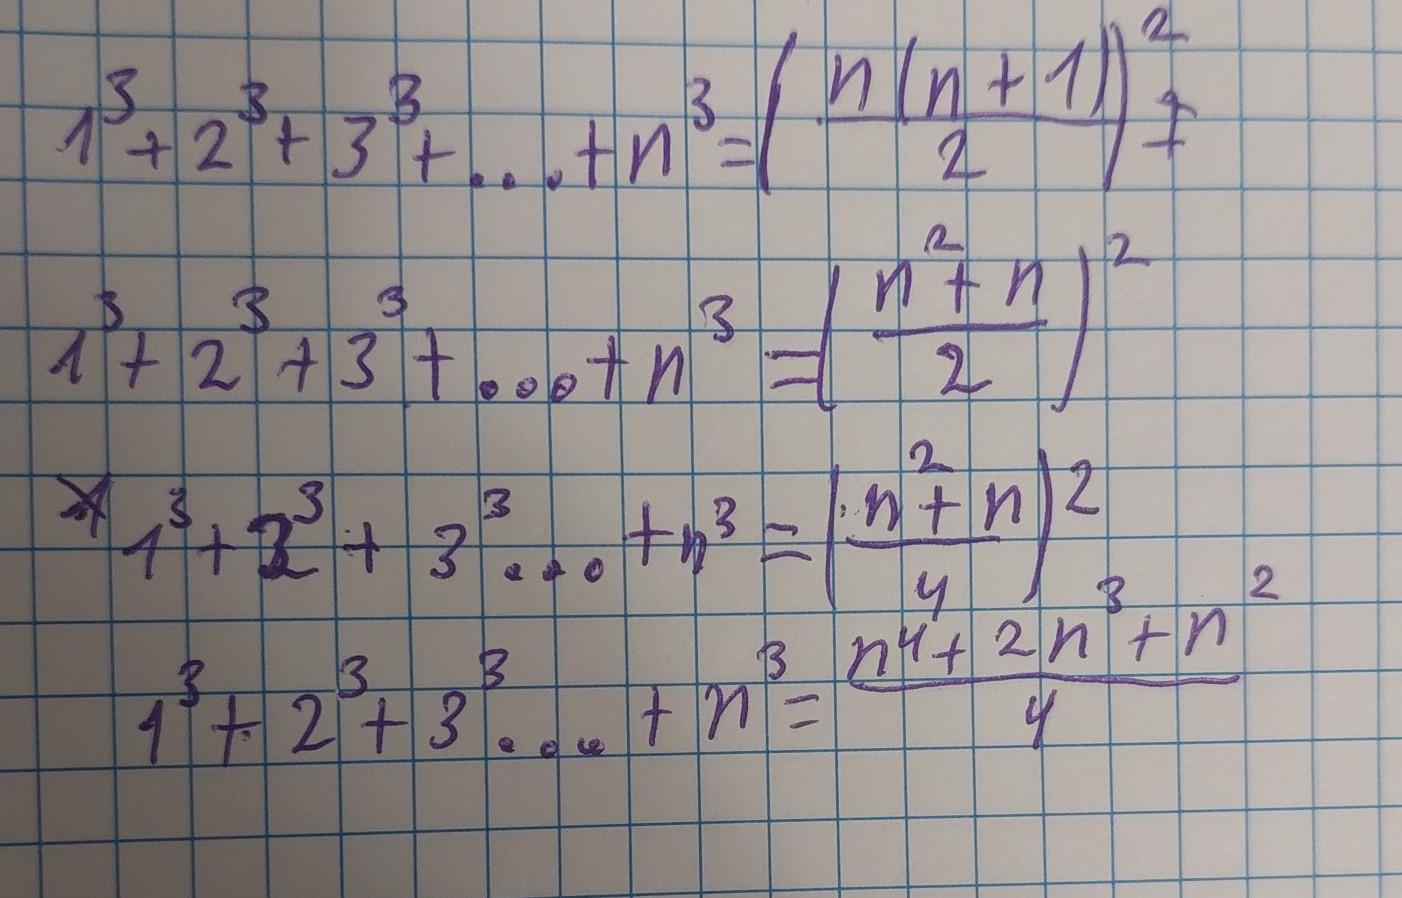 1³ + 2³ + 3³ + ... + n³ = (n(n + 1)/2)²
1³ + 2³ + 3³ + ... + n³ = ((n² + n)/2)²
1³ + 2³ + 3³ ... + n³ = ((n² + n)/4)²
1³ + 2³ + 3³ ... + n³ = (n⁴ + 2n³ + n²)/4